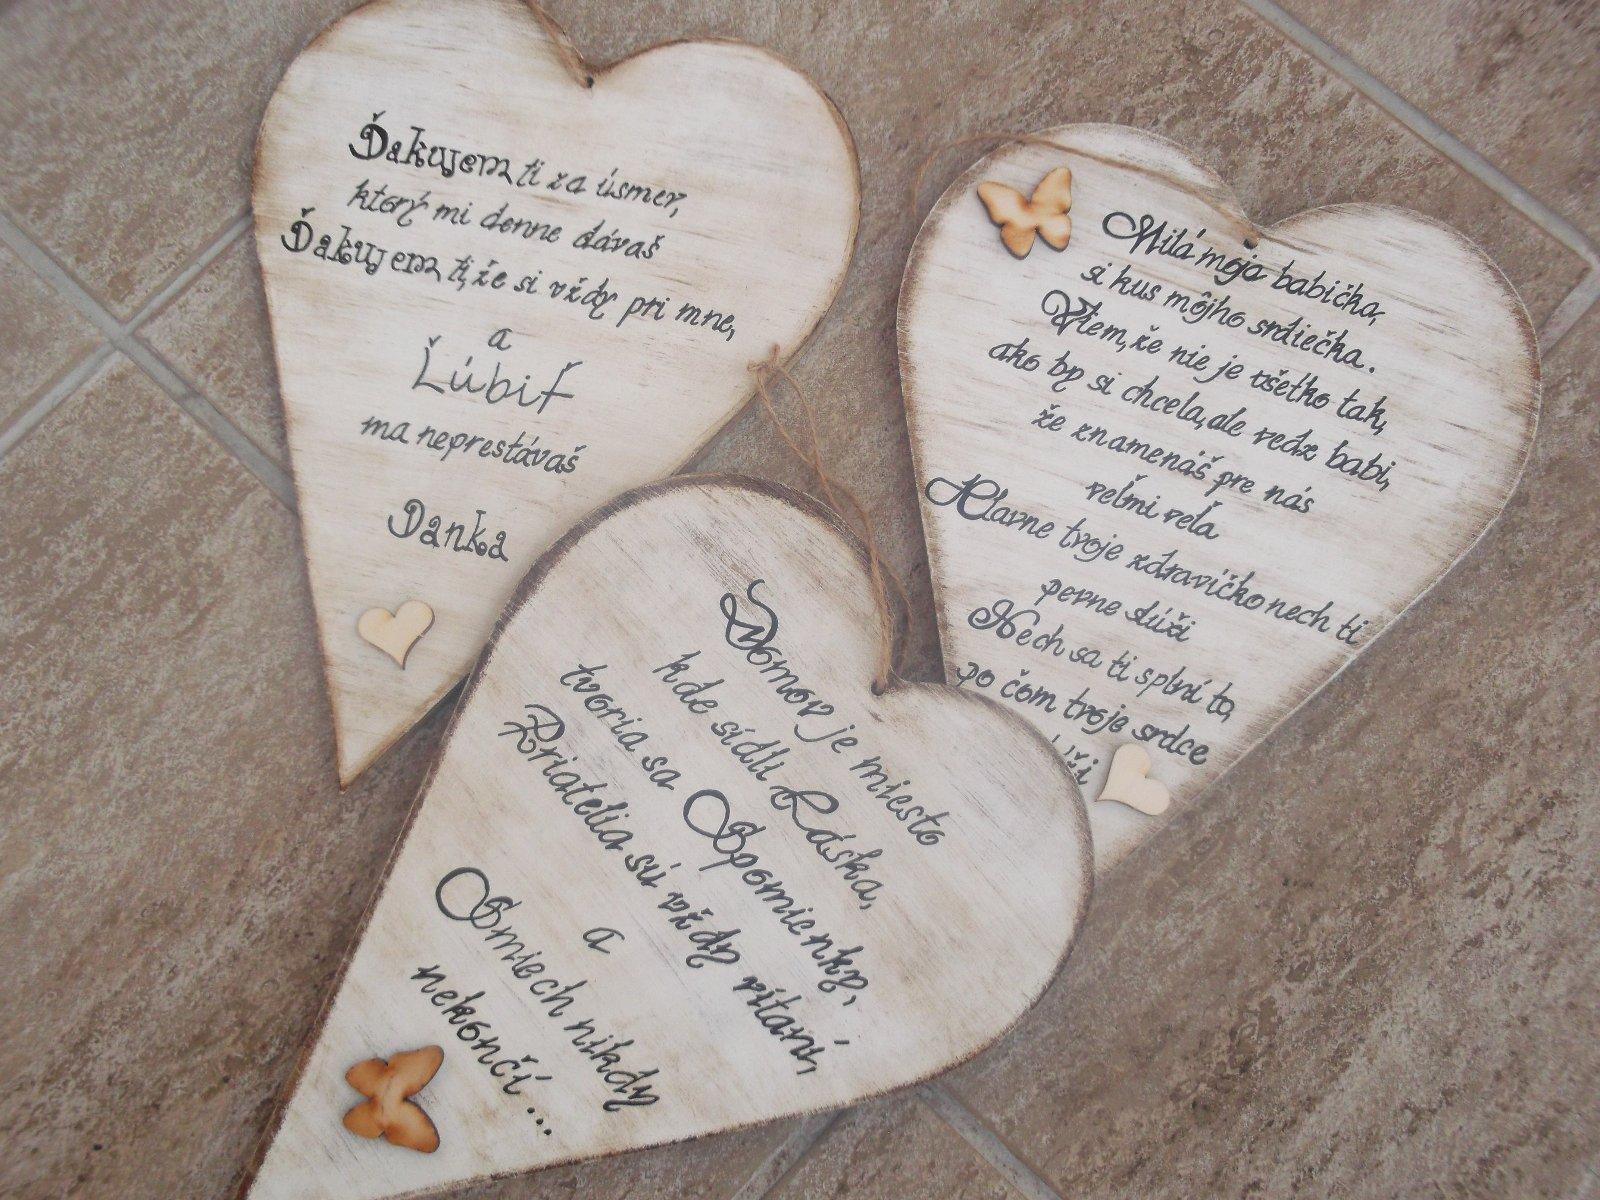 Ďakujem ti za úsmev,
ktorý mi denne dávaš
Ďakujem ti, že si vždy pri mne,
a
Ľúbiť
ma neprestávaš
Danka
Milá moja babička,
si kus môjho srdiečka.
Viem, že nie je všetko tak,
ako by si chcela, ale vedz babi,
že znamenáš pre nás
veľmi veľa
Hlavne tvoje zdravíčko nech ti
pevne slúži
Nech sa ti splní to,
po čom tvoje srdce
Domov je miesto
kde sídli Láska,
tvoria sa Spomienky,
Priatelia sú vždy vítaní,
a
Smiech nikdy
nekončí...